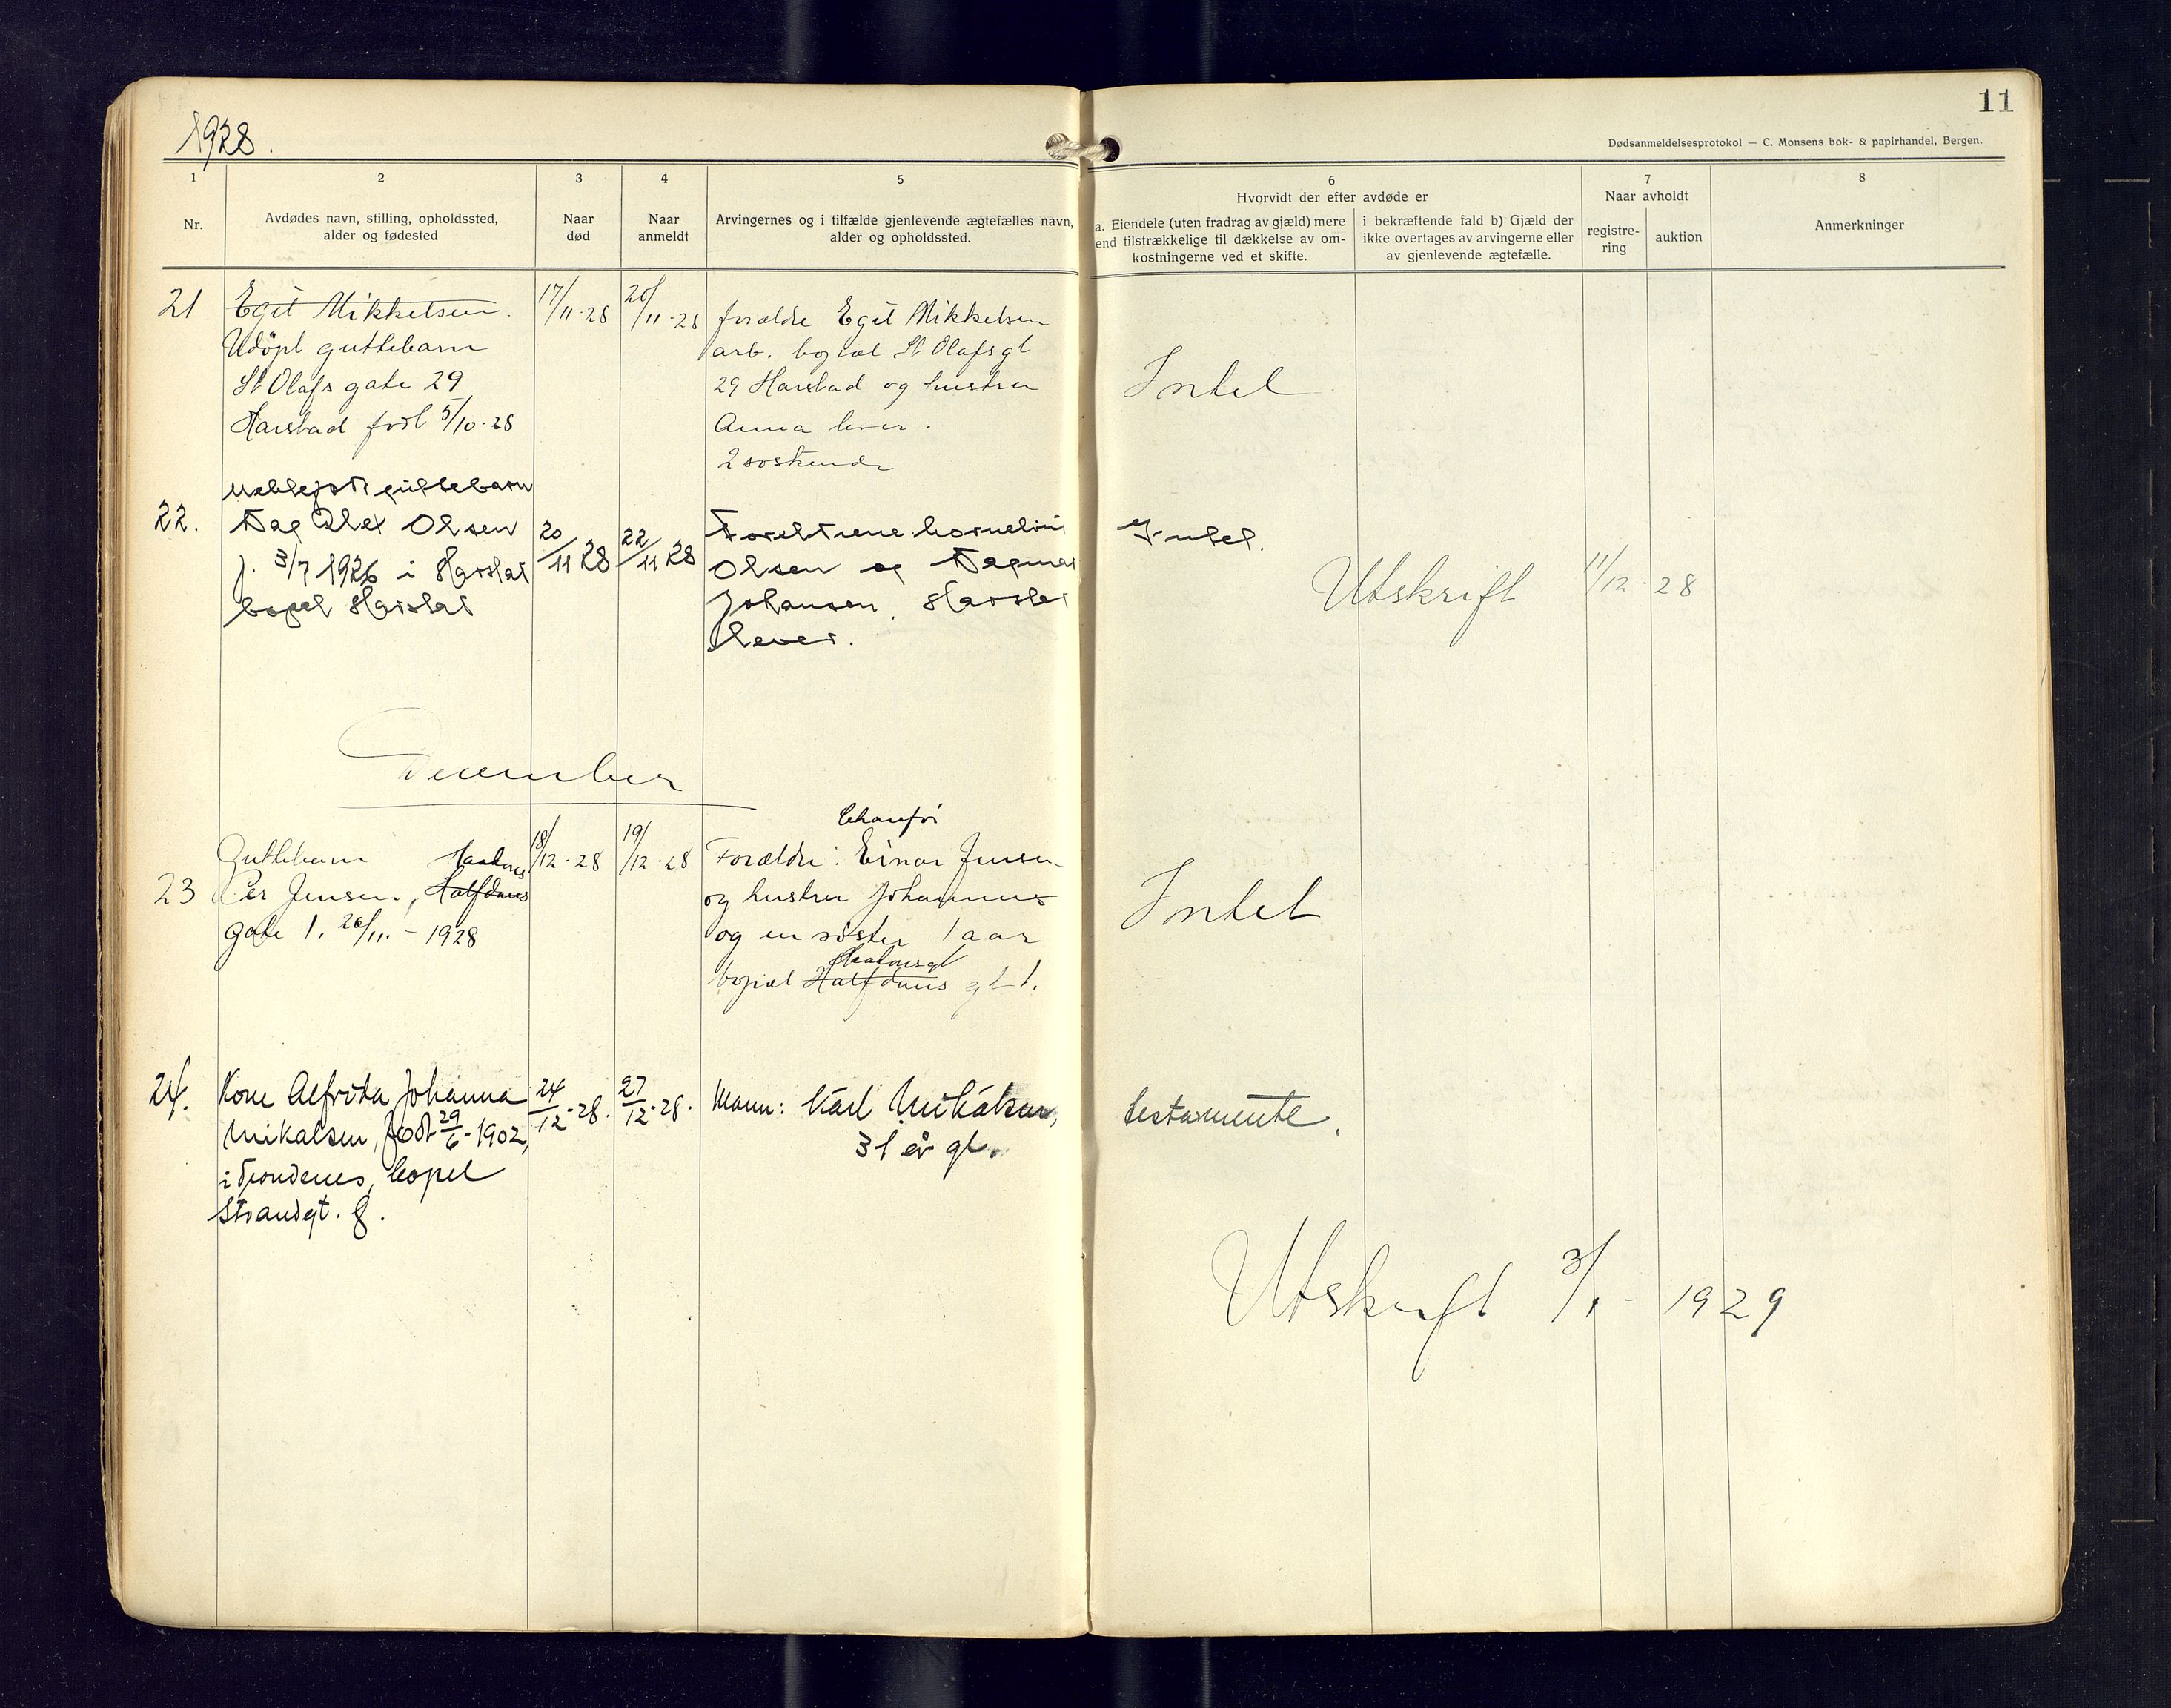 1928.
11
Dødsanmeldelsesprotokol — C. Monsens bok- & papirhandel, Bergen.
1
Nr.
2
Avdødes navn, stilling, opholdssted,
alder og fødested
3
Naar
død
4
Naar
anmeldt
5
Arvingernes og i tilfælde gjenlevende ægtefælles navn,
alder og opholdssted.
6
Hvorvidt der efter avdøde er
a. Eiendele (uten fradrag av gjæld) mere
end tilstrækkelige til dækkelse av om-
kostningerne ved et skifte.
i bekræftende fald b) Gjæld der
ikke overtages av arvingerne eller
av gjenlevende ægtefælle.
7
Naar avholdt
registre-
ring
auktion
8
Anmerkninger
21
Egil Mikkelsen.
Udöpt guttebarn
St Olafs gate 29
Harstad født 5/10-28
17/11-28
20/11-28
forældre Egil Mikkelsen
arb. bopæl St Olafsgt
29 Harstad og hustru
Anna lever.
2 søskende
Intet
22.
guttebarn
Dag Olsen
f. 3/7 1926 i Harstad
bopel Harstad
20/11 28
22/11 28
Foreldrene
Olsen og Dagmar
Johansen, Harstad
lever.
Intet.
Utskrift 11/12-28
December
23
Guttebarn
Haakons
Per Jensen, Halfdans
gate 1. 26/11.-1928
18/12-28
19/12-28
Chaufør
Forældre: Einar Jensen
og hustru
og en søster 1 aar
Haakonsgt
bopæl Halfdans gt 1.
Intet
24.
Kone Alfrida Johanna
Mikalsen, født 29/6-1902,
i Trondenes, bopel
Strandgt. 8.
24/12-28.
27/12-28.
Mann: Karl Mikalsen,
31 år gl.
testamente.
Utskrift 3/1-1929